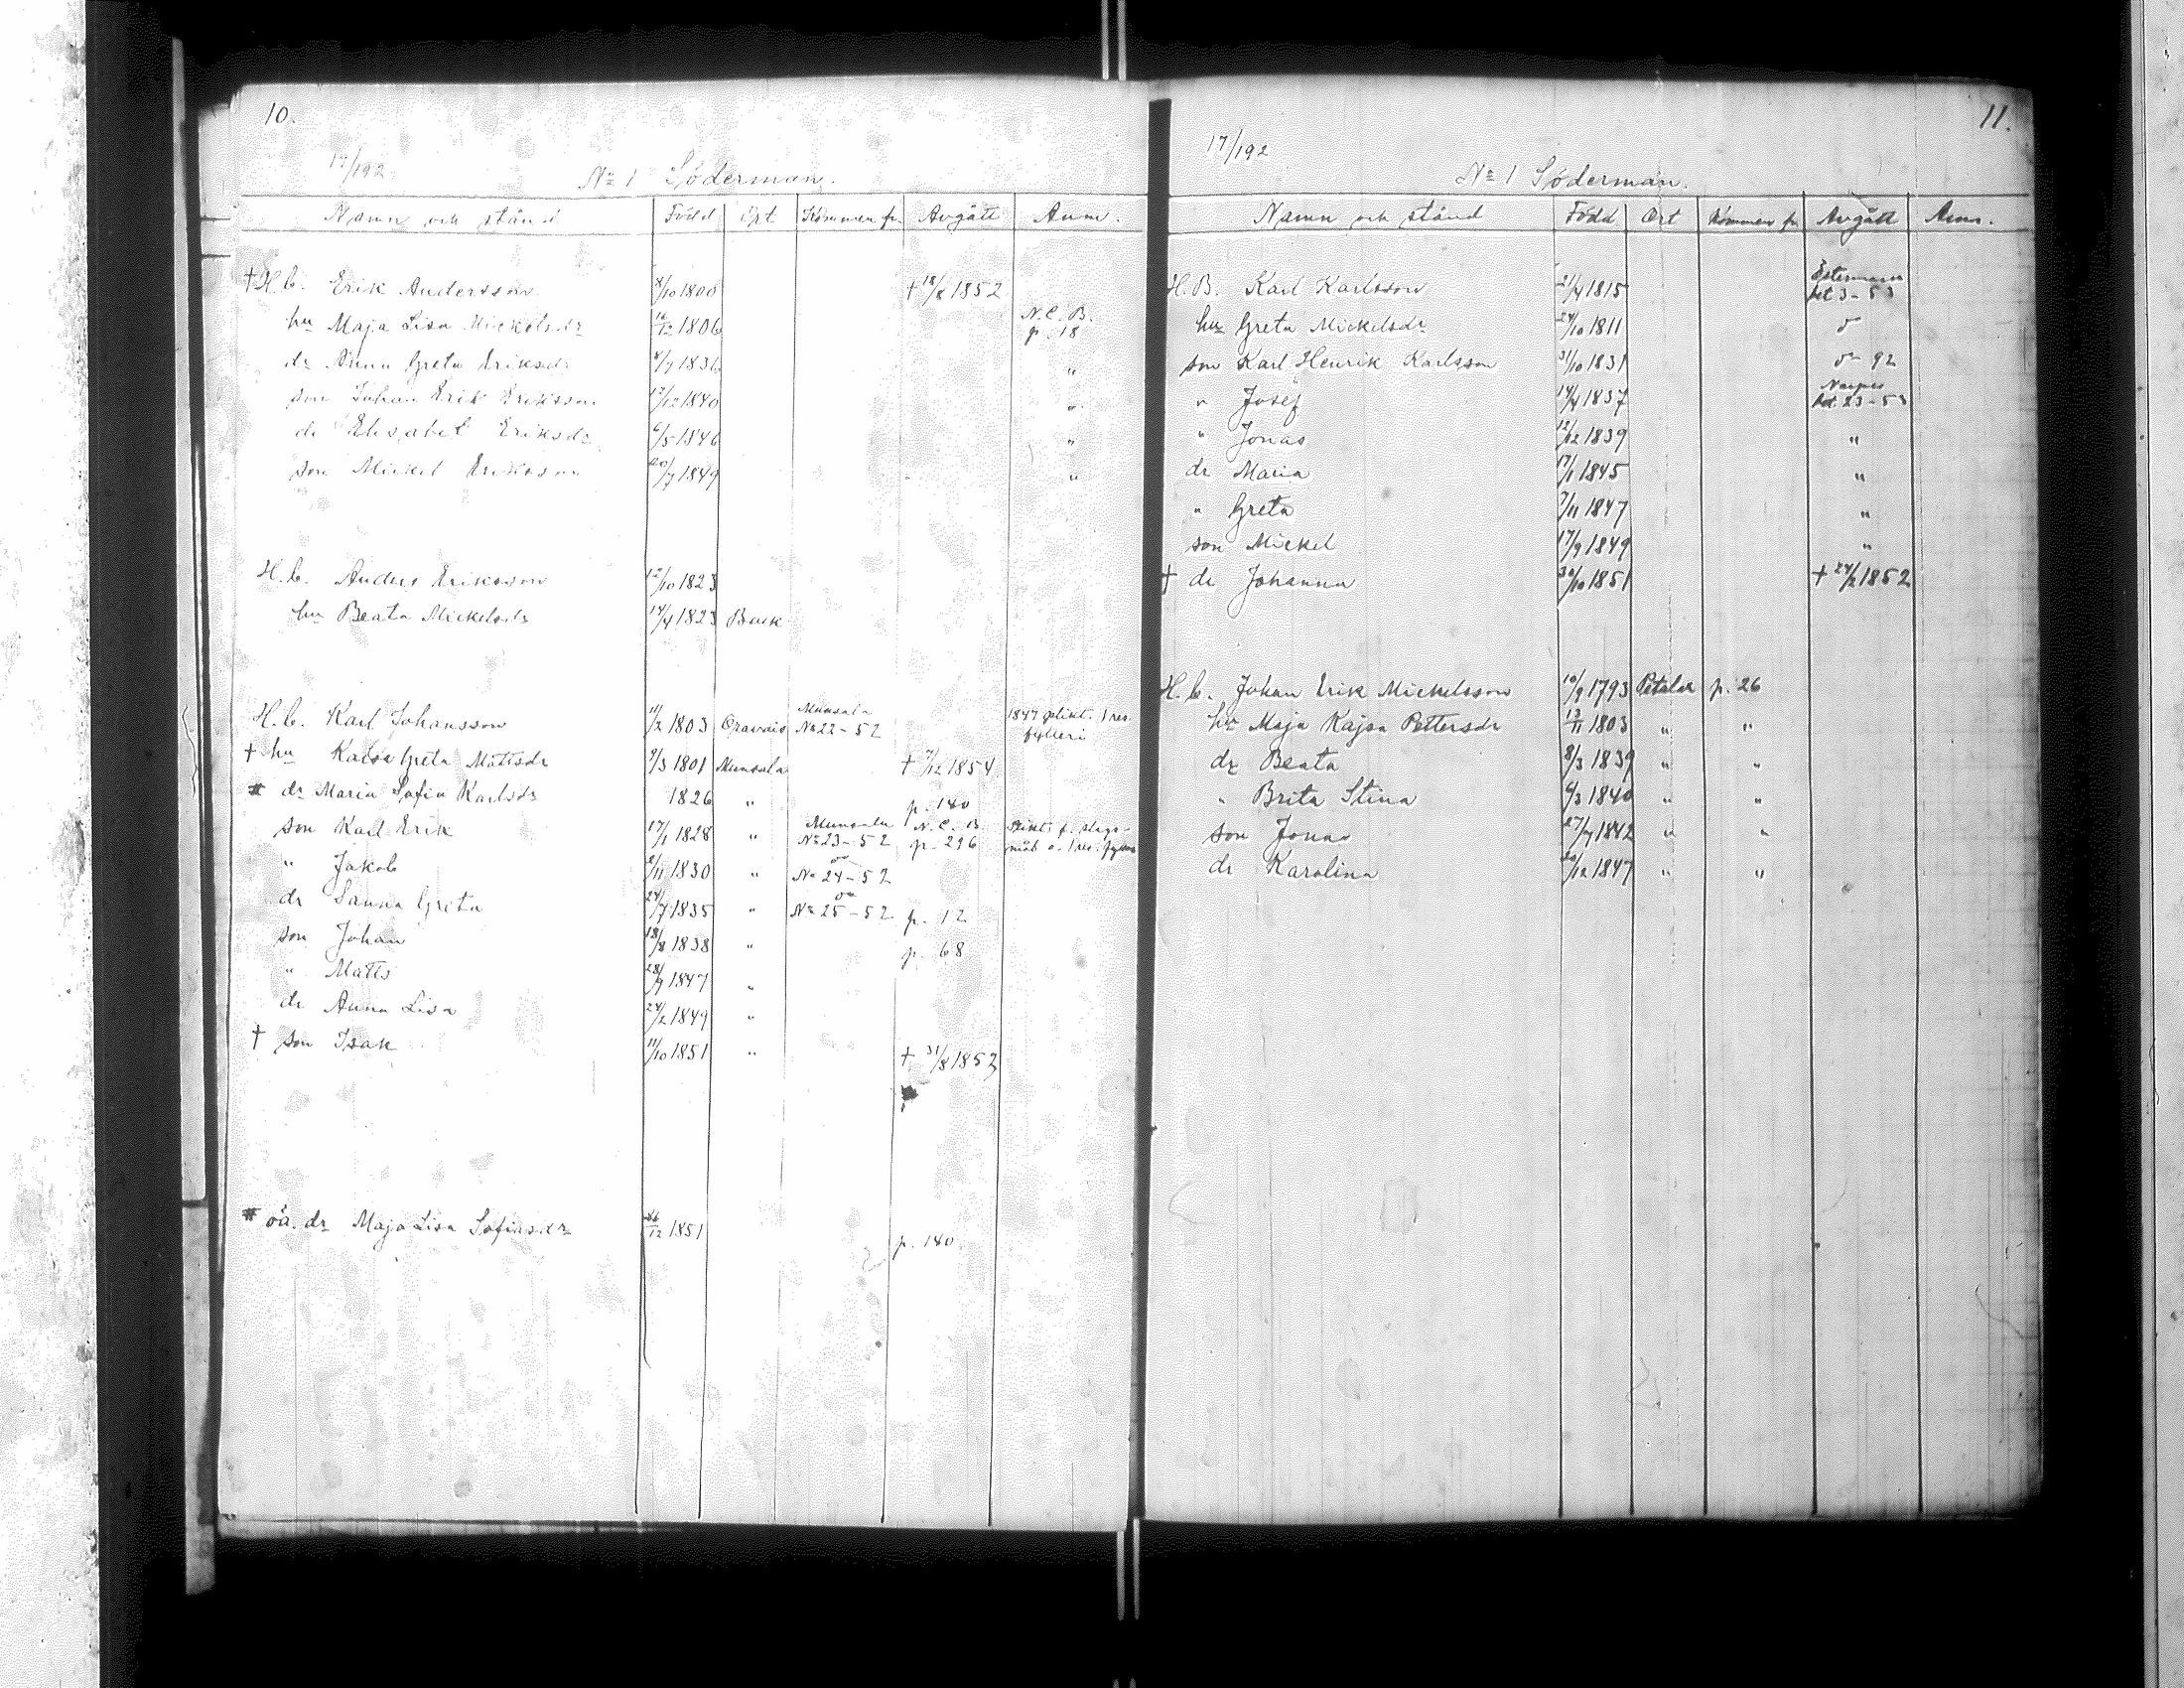 10.
17/192
No 1 Söderman.
Namn och stånd Född Ort Kommen fr. Avgått Anm.
† H.b. Erik Andersson 4/10 1800 † 18/8 1852
hu Maja Lisa Mickelsdr 16/12 1806 N.C.B. p. 18
dr Anna Greta Eriksdr 8/7 1836 "
son Johan Erik Eriksson 17/12 1840 "
dr Elisabet Eriksdr 6/5 1846 "
son Mickel Eriksson 20/7 1849 "
H.b. Anders Eriksson 12/10 1823
hu Beata Mickelsdr 14/4 1823
H.b. Karl Johansson 11/2 1803 Oravais Munsala No 22-52 1847 plikt. 1 res. fylleri
† hu Kajsa Greta Mattsdr 9/3 1801 Munsala † 7/12 1854
# dr Maria Sofia Karlsdr 1826 " p. 140
son Karl Erik 17/1 1828 " Munsala No 23-52 N.C.B. p. 296 Plikt. f. slags-mål o. 1 res.
" Jakob 2/11 1830 " do No 24-52
dr Sanna Greta 24/7 1835 " do No 25-52 p. 12
son Johan 18/8 1838 " p. 68
" Matts 28/9 1847 "
dr Anna Lisa 24/2 1849 "
† son Isak 11/10 1851 " † 31/8 1852
# oä. dr Maja Lisa Sofiasdr 26/12 1851 p. 140
11.
17/192
No 1 Söderman.
Namn och stånd Född Ort Kommen fr. Avgått Anm.
H.B. Karl Karlsson 21/4 1815 Östermark bet 3-53
hu Greta Mickelsdr 24/10 1811 do
son Karl Henrik Karlsson 31/10 1831 do 92
" Josef 14/4 1837 Närpes bet. 23-53
" Jonas 12/12 1839 "
dr Maria 17/1 1845 "
" Greta 7/11 1847 "
son Mickel 17/9 1849 "
† dr Johanna 30/10 1851 † 24/2 1852
H.b. Johan Erik Mickelsson 10/9 1793 Petalax p. 26
hu Maja Kajsa Pettersdr 13/11 1803 " "
dr Beata 8/3 1839 " "
" Brita Stina 6/3 1840 " "
son Jonas 27/7 1842 " "
dr Karolina 20/12 1847 " "